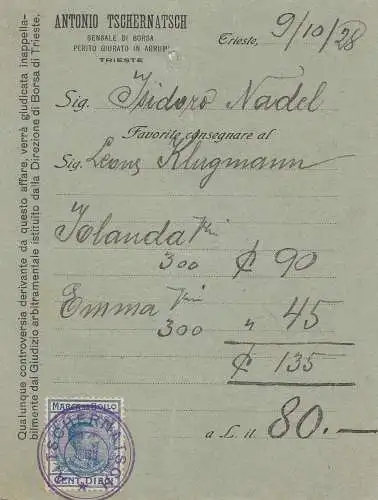 ANTONIO TSCHERNATSCH
SENSALE DI BORSA
PERITO GIURATO IN AGRUMI
TRIESTE
Trieste, 9/10/28
Sig. Isidoro Nadel
Favorite consegnare al
Sig. Leone Klugmann
Iolanda
300 ₵ 90
Emma
300 " 45
₵ 135
a L. it. 80.-
MARCA DA BOLLO
CENT. DIECI
TSCHERNATSCH
Qualunque controversia derivante da questo affare, verrà giudicata inappella-
bilmente dal Giudizio arbitramentale istituito dalla Direzione di Borsa di Trieste.